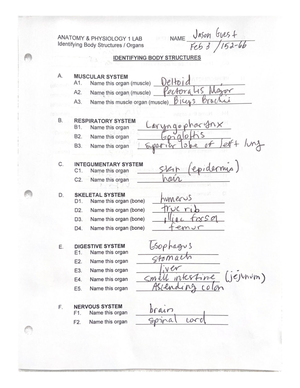 ANATOMY & PHYSIOLOGY 1 LAB NAME Jason Guest
Identifying Body Structures / Organs Feb 3 /152-66
IDENTIFYING BODY STRUCTURES
A. MUSCULAR SYSTEM
A1. Name this organ (muscle) Deltoid
A2. Name this organ (muscle) Pectoralis Major
A3. Name this muscle organ (muscle) Biceps Brachii
B. RESPIRATORY SYSTEM
B1. Name this organ Laryngopharynx
B2. Name this organ Epiglottis
B3. Name this organ Superior lobe of left lung
C. INTEGUMENTARY SYSTEM
C1. Name this organ skin (epidermis)
C2. Name this organ hair
D. SKELETAL SYSTEM
D1 Name this organ (bone) humerus
D2. Name this organ (bone) true rib
D3. Name this organ (bone)
D4. Name this organ (bone) femur
E. DIGESTIVE SYSTEM
E1. Name this organ Esophagus
E2. Name this organ stomach
E3. Name this organ liver
E4. Name this organ small intestine (jejunum)
E5. Name this organ Ascending colon
F. NERVOUS SYSTEM
F1. Name this organ brain
F2. Name this organ spinal cord